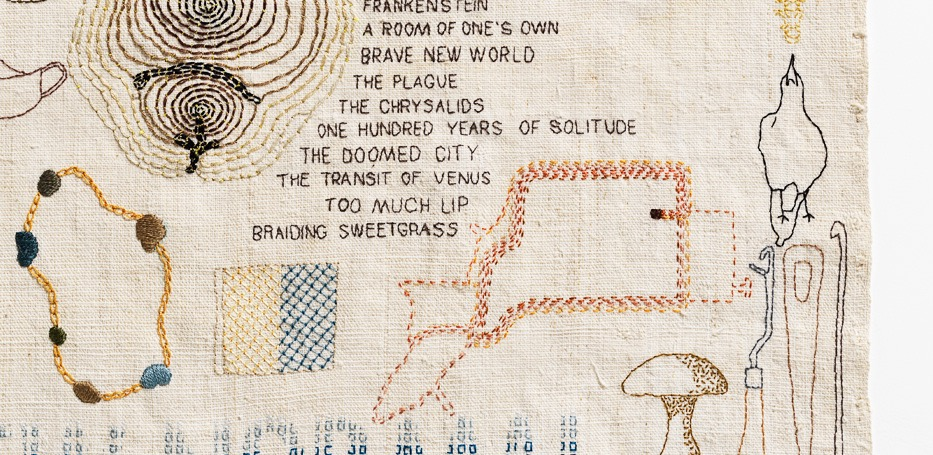 FRANKENSTEIN
A ROOM OF ONE'S OWN
BRAVE NEW WORLD
THE PLAGUE
THE CHRYSALIDS
ONE HUNDRED YEARS OF SOLITUDE
THE DOOMED CITY
THE TRANSIT OF VENUS
TOO MUCH LIP
BRAIDING SWEETGRASS